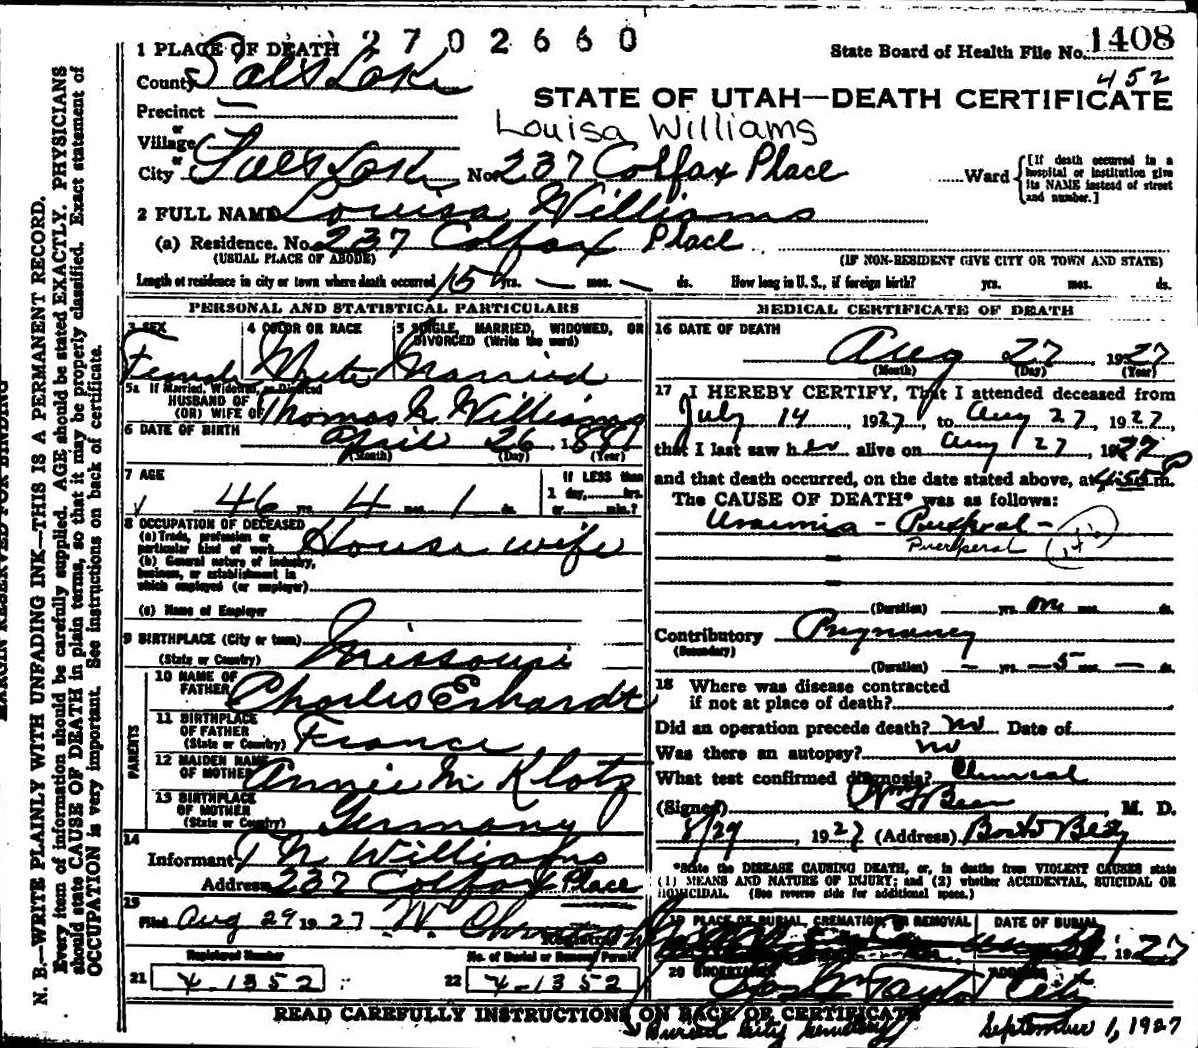 2702660
State Board of Health File No. 1408
452
1 PLACE OF DEATH
County Salt Lake
STATE OF UTAH—DEATH CERTIFICATE
Precinct —
Louisa Williams
or
Village
or
City Salt Lake No. 237 Colfax Place Ward
[If death occurred in a hospital or institution give its NAME instead of street and number.]
2 FULL NAME Louisa Williams
(a) Residence. No. 237 Colfax Place
(USUAL PLACE OF ABODE) (IF NON-RESIDENT GIVE CITY OR TOWN AND STATE)
Length of residence in city or town where death occurred 15 yrs. — mos. — ds. How long in U. S., if foreign birth? yrs. mos. ds.
PERSONAL AND STATISTICAL PARTICULARS
3 SEX 4 COLOR OR RACE 5 SINGLE, MARRIED, WIDOWED, OR DIVORCED (Write the word)
Female White Married
5a If Married, Widowed, or Divorced
HUSBAND OF
(OR) WIFE OF Thomas N Williams
6 DATE OF BIRTH April 26 1881
(Month) (Day) (Year)
7 AGE If LESS than
1 day, hrs.
46 yrs. 4 mos. 1 ds. or min.?
8 OCCUPATION OF DECEASED
(a) Trade, profession or particular kind of work House wife
(b) General nature of industry, business, or establishment in which employed (or employer)
(c) Name of Employer
9 BIRTHPLACE (City or town)
(State or Country) Missouri
PARENTS
10 NAME OF FATHER Charles Erhardt
11 BIRTHPLACE OF FATHER
(State or Country) France
12 MAIDEN NAME OF MOTHER Annie M Klotz
13 BIRTHPLACE OF MOTHER
(State or Country) Germany
14
Informant T N Williams
Address 237 Colfax Place
15
Filed Aug 29 1927 W.
Registrar
Registered Number No. of Burial or Removal Permit
21 X-1352 22 X-1352
MEDICAL CERTIFICATE OF DEATH
16 DATE OF DEATH
Aug 27 1927
(Month) (Day) (Year)
17 I HEREBY CERTIFY, That I attended deceased from
July 14, 1927, to Aug 27, 1927,
that I last saw her alive on Aug 27, 1927
and that death occurred, on the date stated above, at 4:55 P m.
The CAUSE OF DEATH* was as follows:
Uraemia - Puerperal -
Puerperal
(Duration) yrs. one mos. ds.
Contributory Pregnancy
(Secondary)
(Duration) — yrs. — 5 mos. — ds.
18 Where was disease contracted
if not at place of death?
Did an operation precede death? no Date of
Was there an autopsy? no
What test confirmed diagnosis? Clinical
(Signed) Beer M. D.
8/29, 1927 (Address)
*State the DISEASE CAUSING DEATH, or, in deaths from VIOLENT CAUSES state
(1) MEANS AND NATURE OF INJURY; and (2) whether ACCIDENTAL, SUICIDAL OR
HOMICIDAL. (See reverse side for additional space.)
19 PLACE OF BURIAL, CREMATION OR REMOVAL DATE OF BURIAL
1927
20 UNDERTAKER ADDRESS
Taylor City
READ CAREFULLY INSTRUCTIONS ON BACK OF CERTIFICATE
Burial City Cemetery September 1, 1927
MARGIN RESERVED FOR BINDING
N. B.—WRITE PLAINLY WITH UNFADING INK—THIS IS A PERMANENT RECORD.
Every item of information should be carefully supplied. AGE should be stated EXACTLY. PHYSICIANS
should state CAUSE OF DEATH in plain terms, so that it may be properly classified. Exact statement of
OCCUPATION is very important. See instructions on back of certificate.